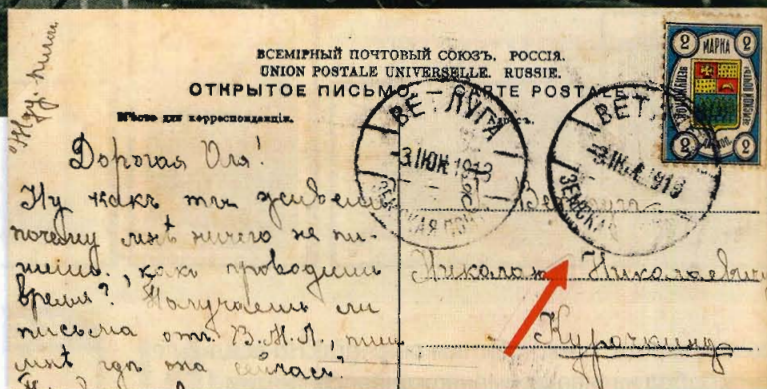 ВСЕМІРНЫЙ ПОЧТОВЫЙ СОЮЗЪ. РОССІЯ.
UNION POSTALE UNIVERSELLE. RUSSIE.
ОТКРЫТОЕ ПИСЬМО. — CARTE POSTALE
Мѣсто для корреспонденціи.
Адресъ.
Дорогая Оля!
Ну какъ ты
почему мнѣ ничего не пи-
шешь, какъ проводишь
время? Получаешь ли
письма отъ В.М.Л., пиши
мнѣ гдѣ она сейчасъ?
ВЕТЛУГА
3.ІЮН.1913
ЗЕМСКАЯ ПОЧ
ВЕТЛ
3.ІЮН.1913
ЗЕМСКАЯ
2 МАРКА 2
2 2
Николаю Николаевичу
Курочкину